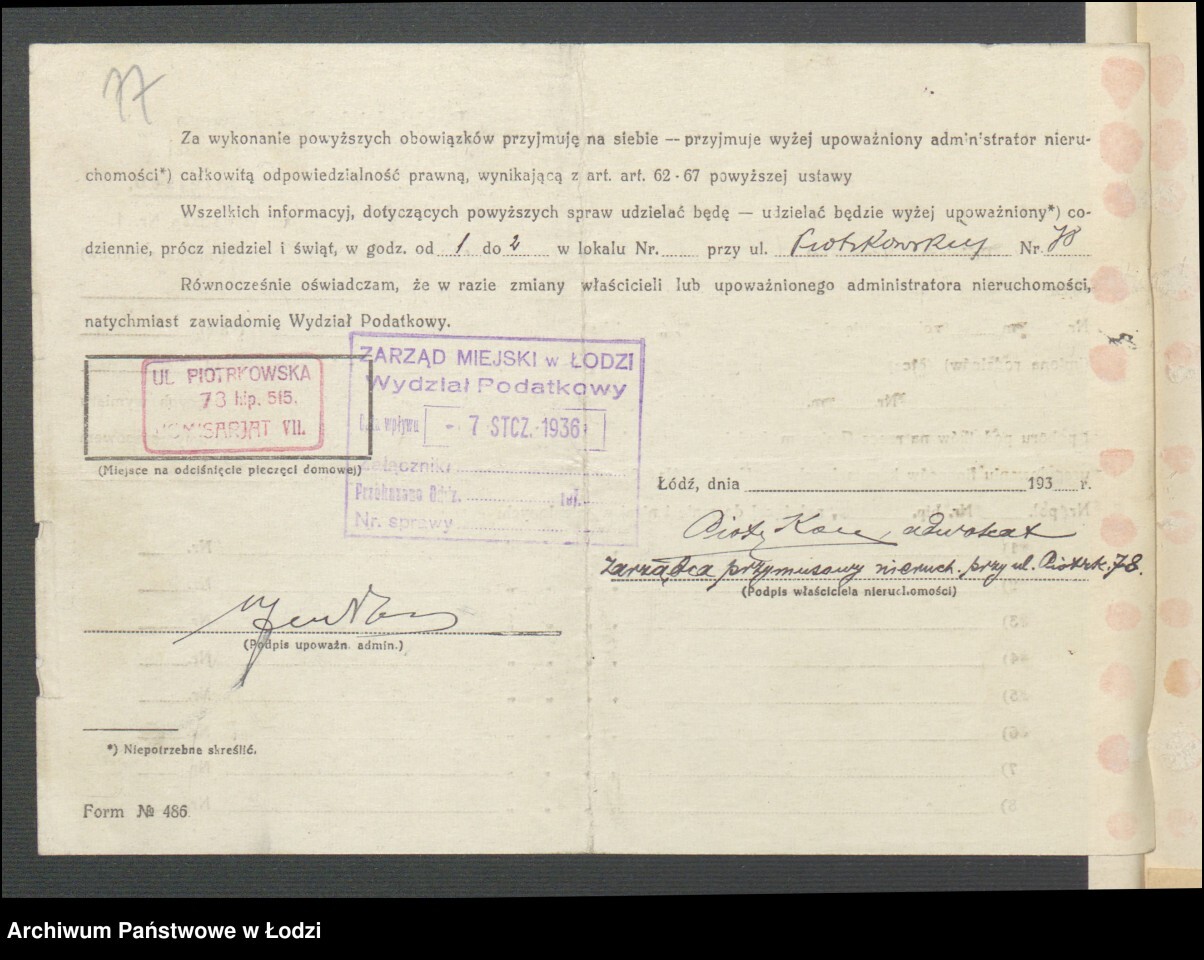 77
Za wykonanie powyższych obowiązków przyjmuję na siebie — przyjmuje wyżej upoważniony administrator nieru-
chomości*) całkowitą odpowiedzialność prawną, wynikającą z art. art. 62-67 powyższej ustawy
Wszelkich informacyj, dotyczących powyższych spraw udzielać będę — udzielać będzie wyżej upoważniony*) co-
dziennie, prócz niedziel i świąt, w godz. od 1 do 2 w lokalu Nr. przy ul. Piotrkowskiej Nr. 78
Równocześnie oświadczam, że w razie zmiany właścicieli lub upoważnionego administratora nieruchomości,
natychmiast zawiadomię Wydział Podatkowy.
UL PIOTRKOWSKA
78 hip. 515.
KOMISARJAT VII.
(Miejsce na odciśnięcie pieczęci domowej)
ZARZĄD MIEJSKI w ŁODZI
Wydział Podatkowy
Data wpływu - 7 STCZ. 1936
Załączniki
Przekazano Oddz.
Nr. sprawy
Łódź, dnia 193 r.
Piotr Kon, adwokat
Zarządca przymusowy nieruch. przy ul. Piotrk. 78.
(Podpis właściciela nieruchomości)
(Podpis upoważn. admin.)
*) Niepotrzebne skreślić.
Form № 486
Archiwum Państwowe w Łodzi